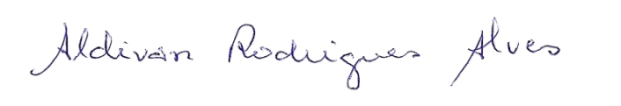 Aldivan Rodrigues Alves